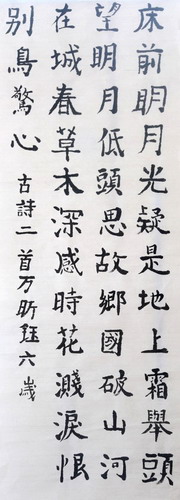 床前明月光疑是地上霜舉頭
望明月低頭思故鄉國破山河
在城春草木深感時花濺淚恨
別鳥驚心 古詩二首万昕鈺六歲